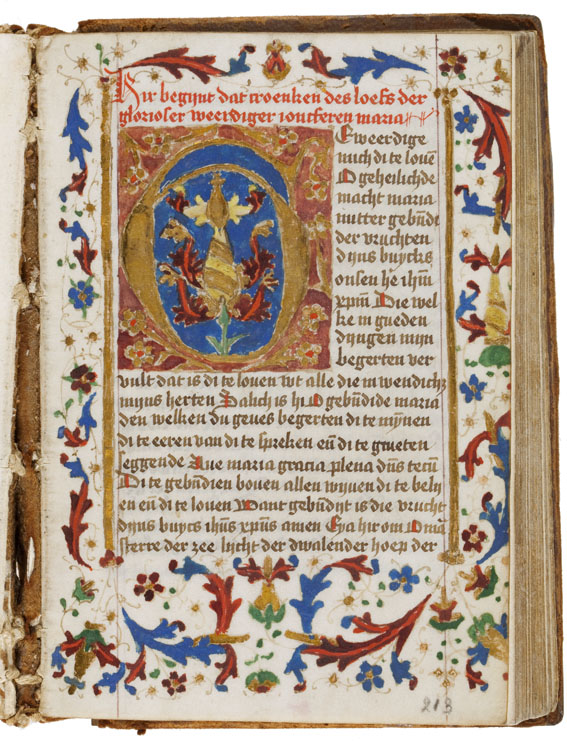 Hir begynt dat croenken des loefs der
glorioser weerdiger ioncferen maria
Eweerdige
mich di te loue
O geheilichde
macht maria
mutter gebūdi
der vruchten
dijns buycks
onsen he ihm
xpm Die wel
ke in gueden
dyngen myn
begerten ver
vult dat is di te louen wt alle die inwendich
mijns herten Salich is hi O gebūdide maria
den welken du geues begerten di te mynen
di te eeren van di te spreken eñ di te grueten
seggende Aue maria gracia plena dñs tecū
Di te gebūdien bouen allen wyuen di te beli
en eñ di te louen Want gebūdijt is die vrucht
dijns buycs ihus xpus amen Eya hir om O mīa
sterre der zee lycht der dwalender hoep der
213